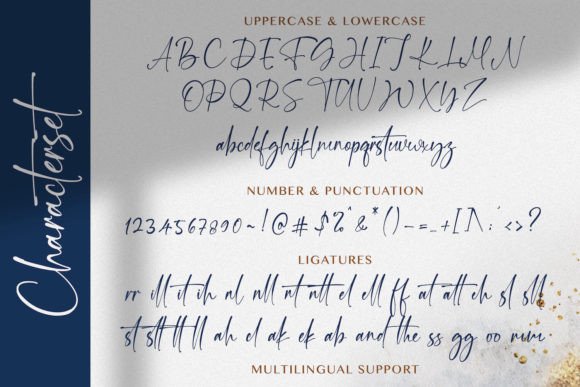 Characterset
UPPERCASE & LOWERCASE
ABCDEFGHIJKLMN
OPQRSTUVWXYZ
abcdefghijklmnopqrstuvwxyz
NUMBER & PUNCTUATION
1234567890~!@#$%^&*()-=_+[]\:'<>?
LIGATURES
rr ill it ih nl nll nt ntt el ell ff at att eh sl sll
st stt tt ll ah el ak ek ab and the ss gg oo mm
MULTILINGUAL SUPPORT